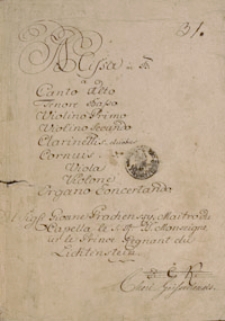 31.
Missa in
a
Canto Alto
Tenore Basso
Violino Primo
Violino Secondo
Clarinettis
Cornuis
Viola
Violone
Organo Concertando
Maitro di
Capella le S. M. Monseigneur
le Prince Regnant de
Lichtinstein